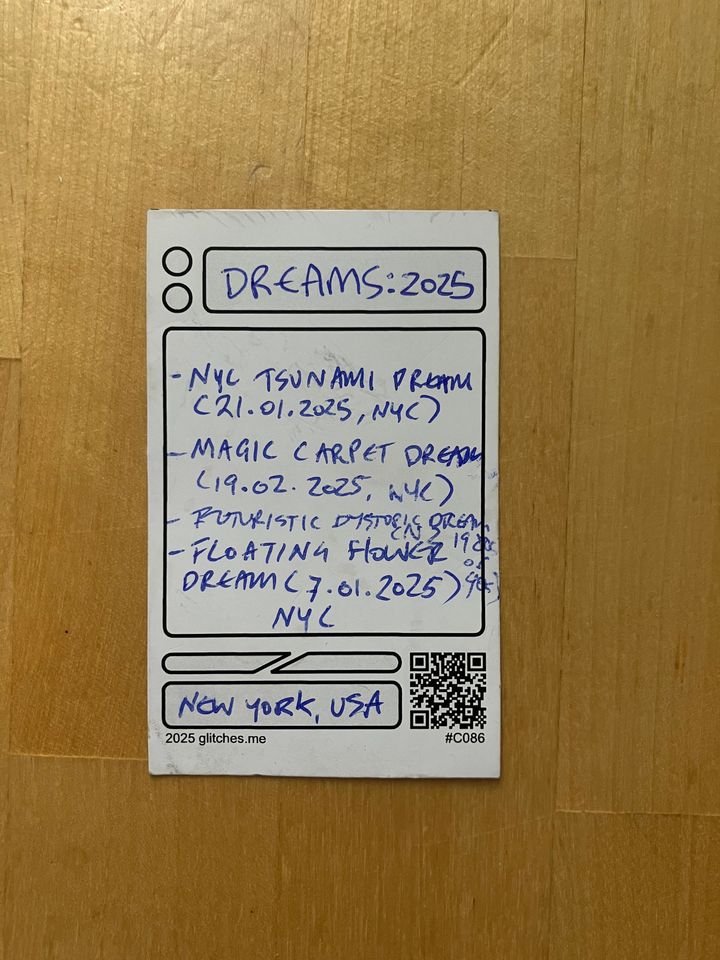 DREAMS: 2025
- NYC TSUNAMI DREAM
(21.01.2025, NYC)
- MAGIC CARPET DREAM
(19.02. 2025, NYC)
- FUTURISTIC DYSTOPIC DREAM
- FLOATING FLOWER
DREAM (7.01.2025)
NYC
NEW YORK, USA
2025 glitches.me
#C086